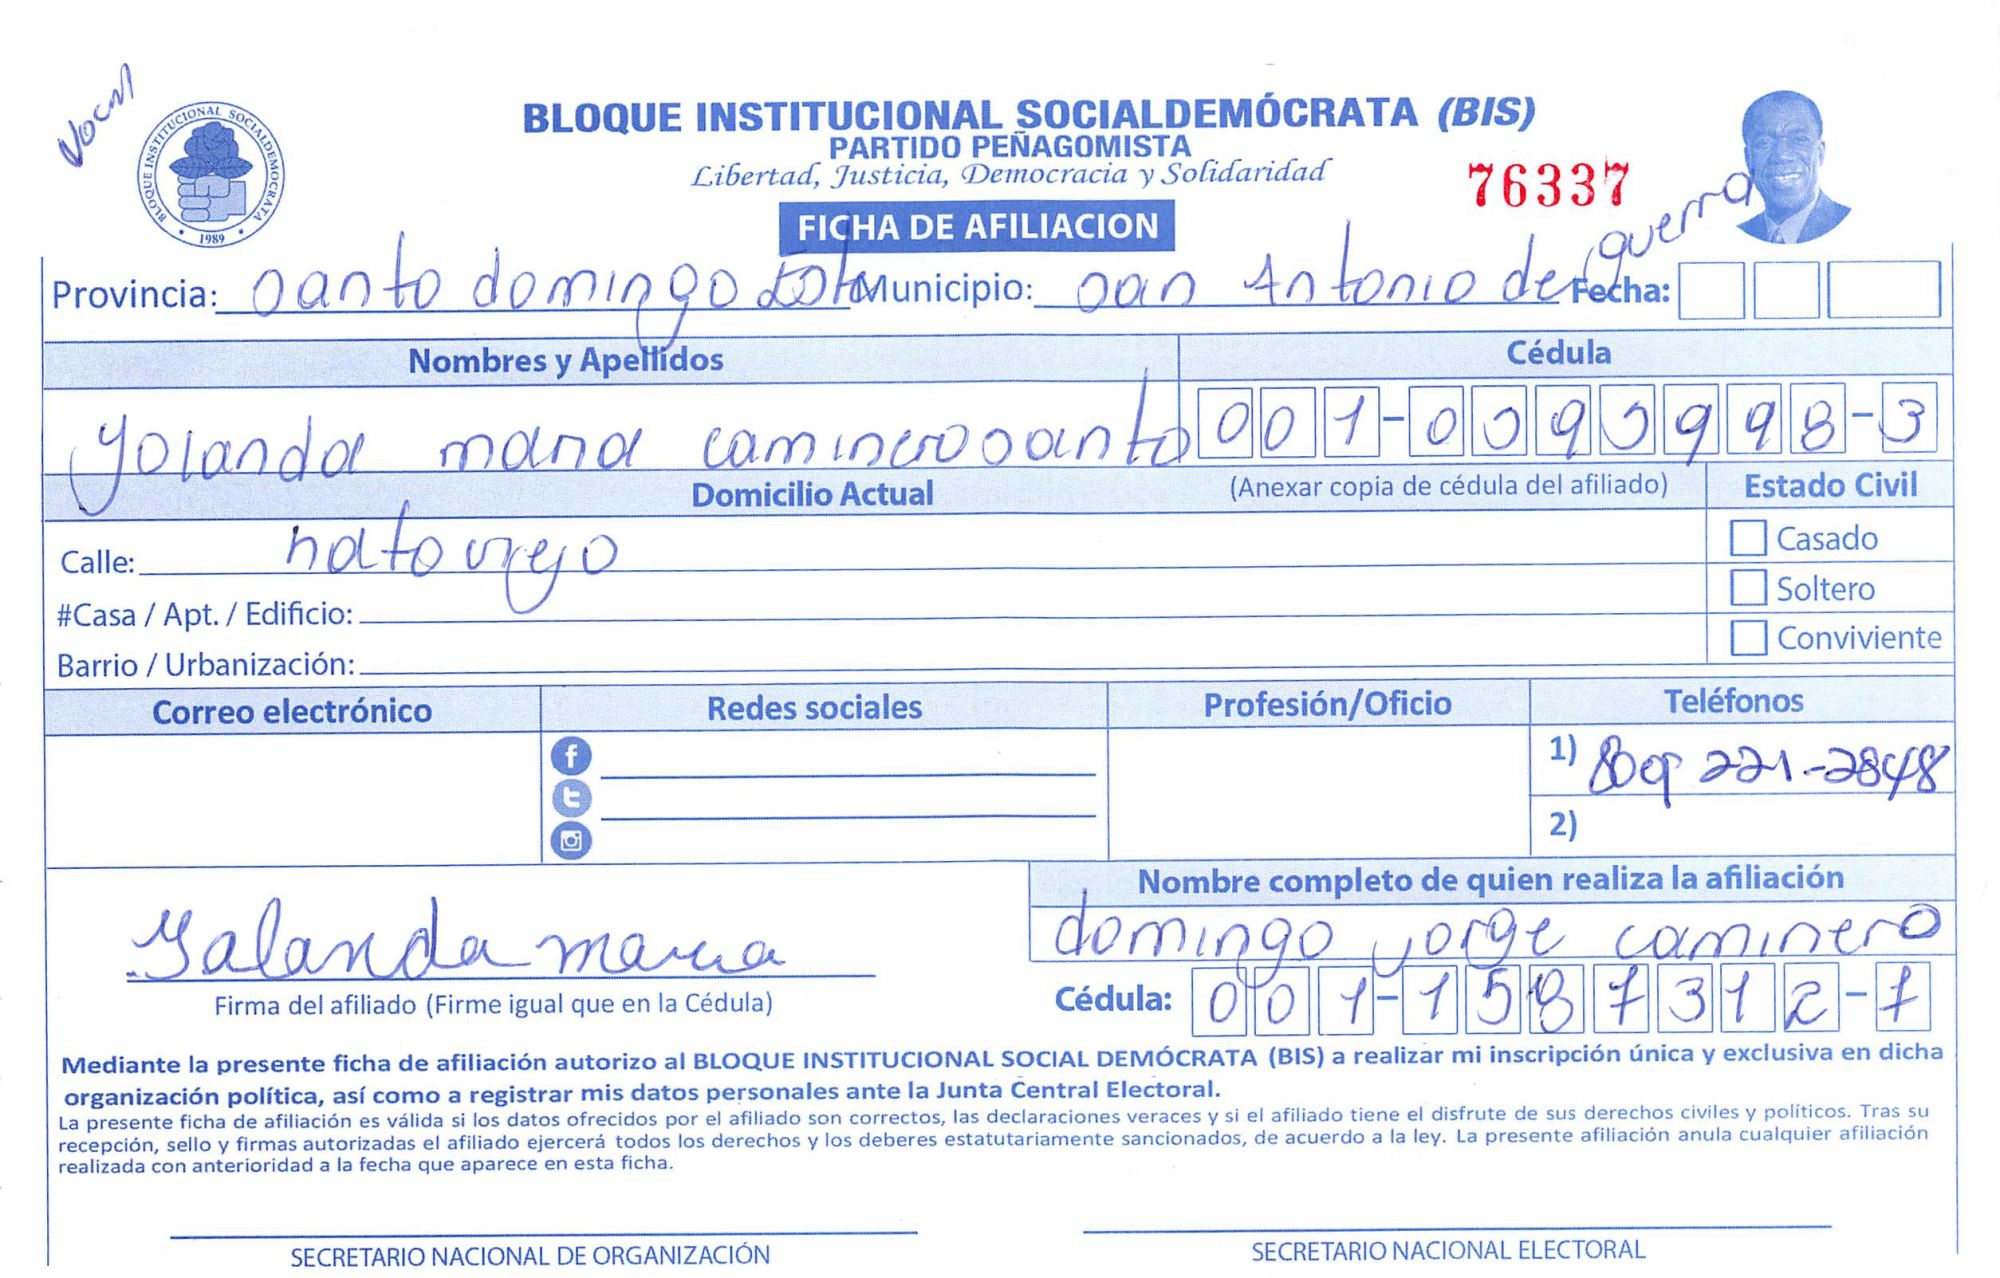 vocal
BLOQUE INSTITUCIONAL SOCIALDEMOCRATA
1989
BLOQUE INSTITUCIONAL SOCIALDEMÓCRATA (BIS)
PARTIDO PEÑAGOMISTA
Libertad, Justicia, Democracia y Solidaridad
76337
FICHA DE AFILIACION
Provincia: santo domingo Este Municipio: san Antonio de guerra Fecha:
Nombres y Apellidos Cédula
Yolanda maria caminero santo 001-0093998-3
Domicilio Actual (Anexar copia de cédula del afiliado) Estado Civil
Calle: hato viejo Casado
#Casa / Apt. / Edificio: Soltero
Barrio / Urbanización: Conviviente
Correo electrónico Redes sociales Profesión/Oficio Teléfonos
1) 809 221-2848
2)
Nombre completo de quien realiza la afiliación
domingo jorge caminero
Yalanda maria
Firma del afiliado (Firme igual que en la Cédula) Cédula: 001-1587312-1
Mediante la presente ficha de afiliación autorizo al BLOQUE INSTITUCIONAL SOCIAL DEMÓCRATA (BIS) a realizar mi inscripción única y exclusiva en dicha
organización política, así como a registrar mis datos personales ante la Junta Central Electoral.
La presente ficha de afiliación es válida si los datos ofrecidos por el afiliado son correctos, las declaraciones veraces y si el afiliado tiene el disfrute de sus derechos civiles y políticos. Tras su
recepción, sello y firmas autorizadas el afiliado ejercerá todos los derechos y los deberes estatutariamente sancionados, de acuerdo a la ley. La presente afiliación anula cualquier afiliación
realizada con anterioridad a la fecha que aparece en esta ficha.
SECRETARIO NACIONAL DE ORGANIZACIÓN SECRETARIO NACIONAL ELECTORAL